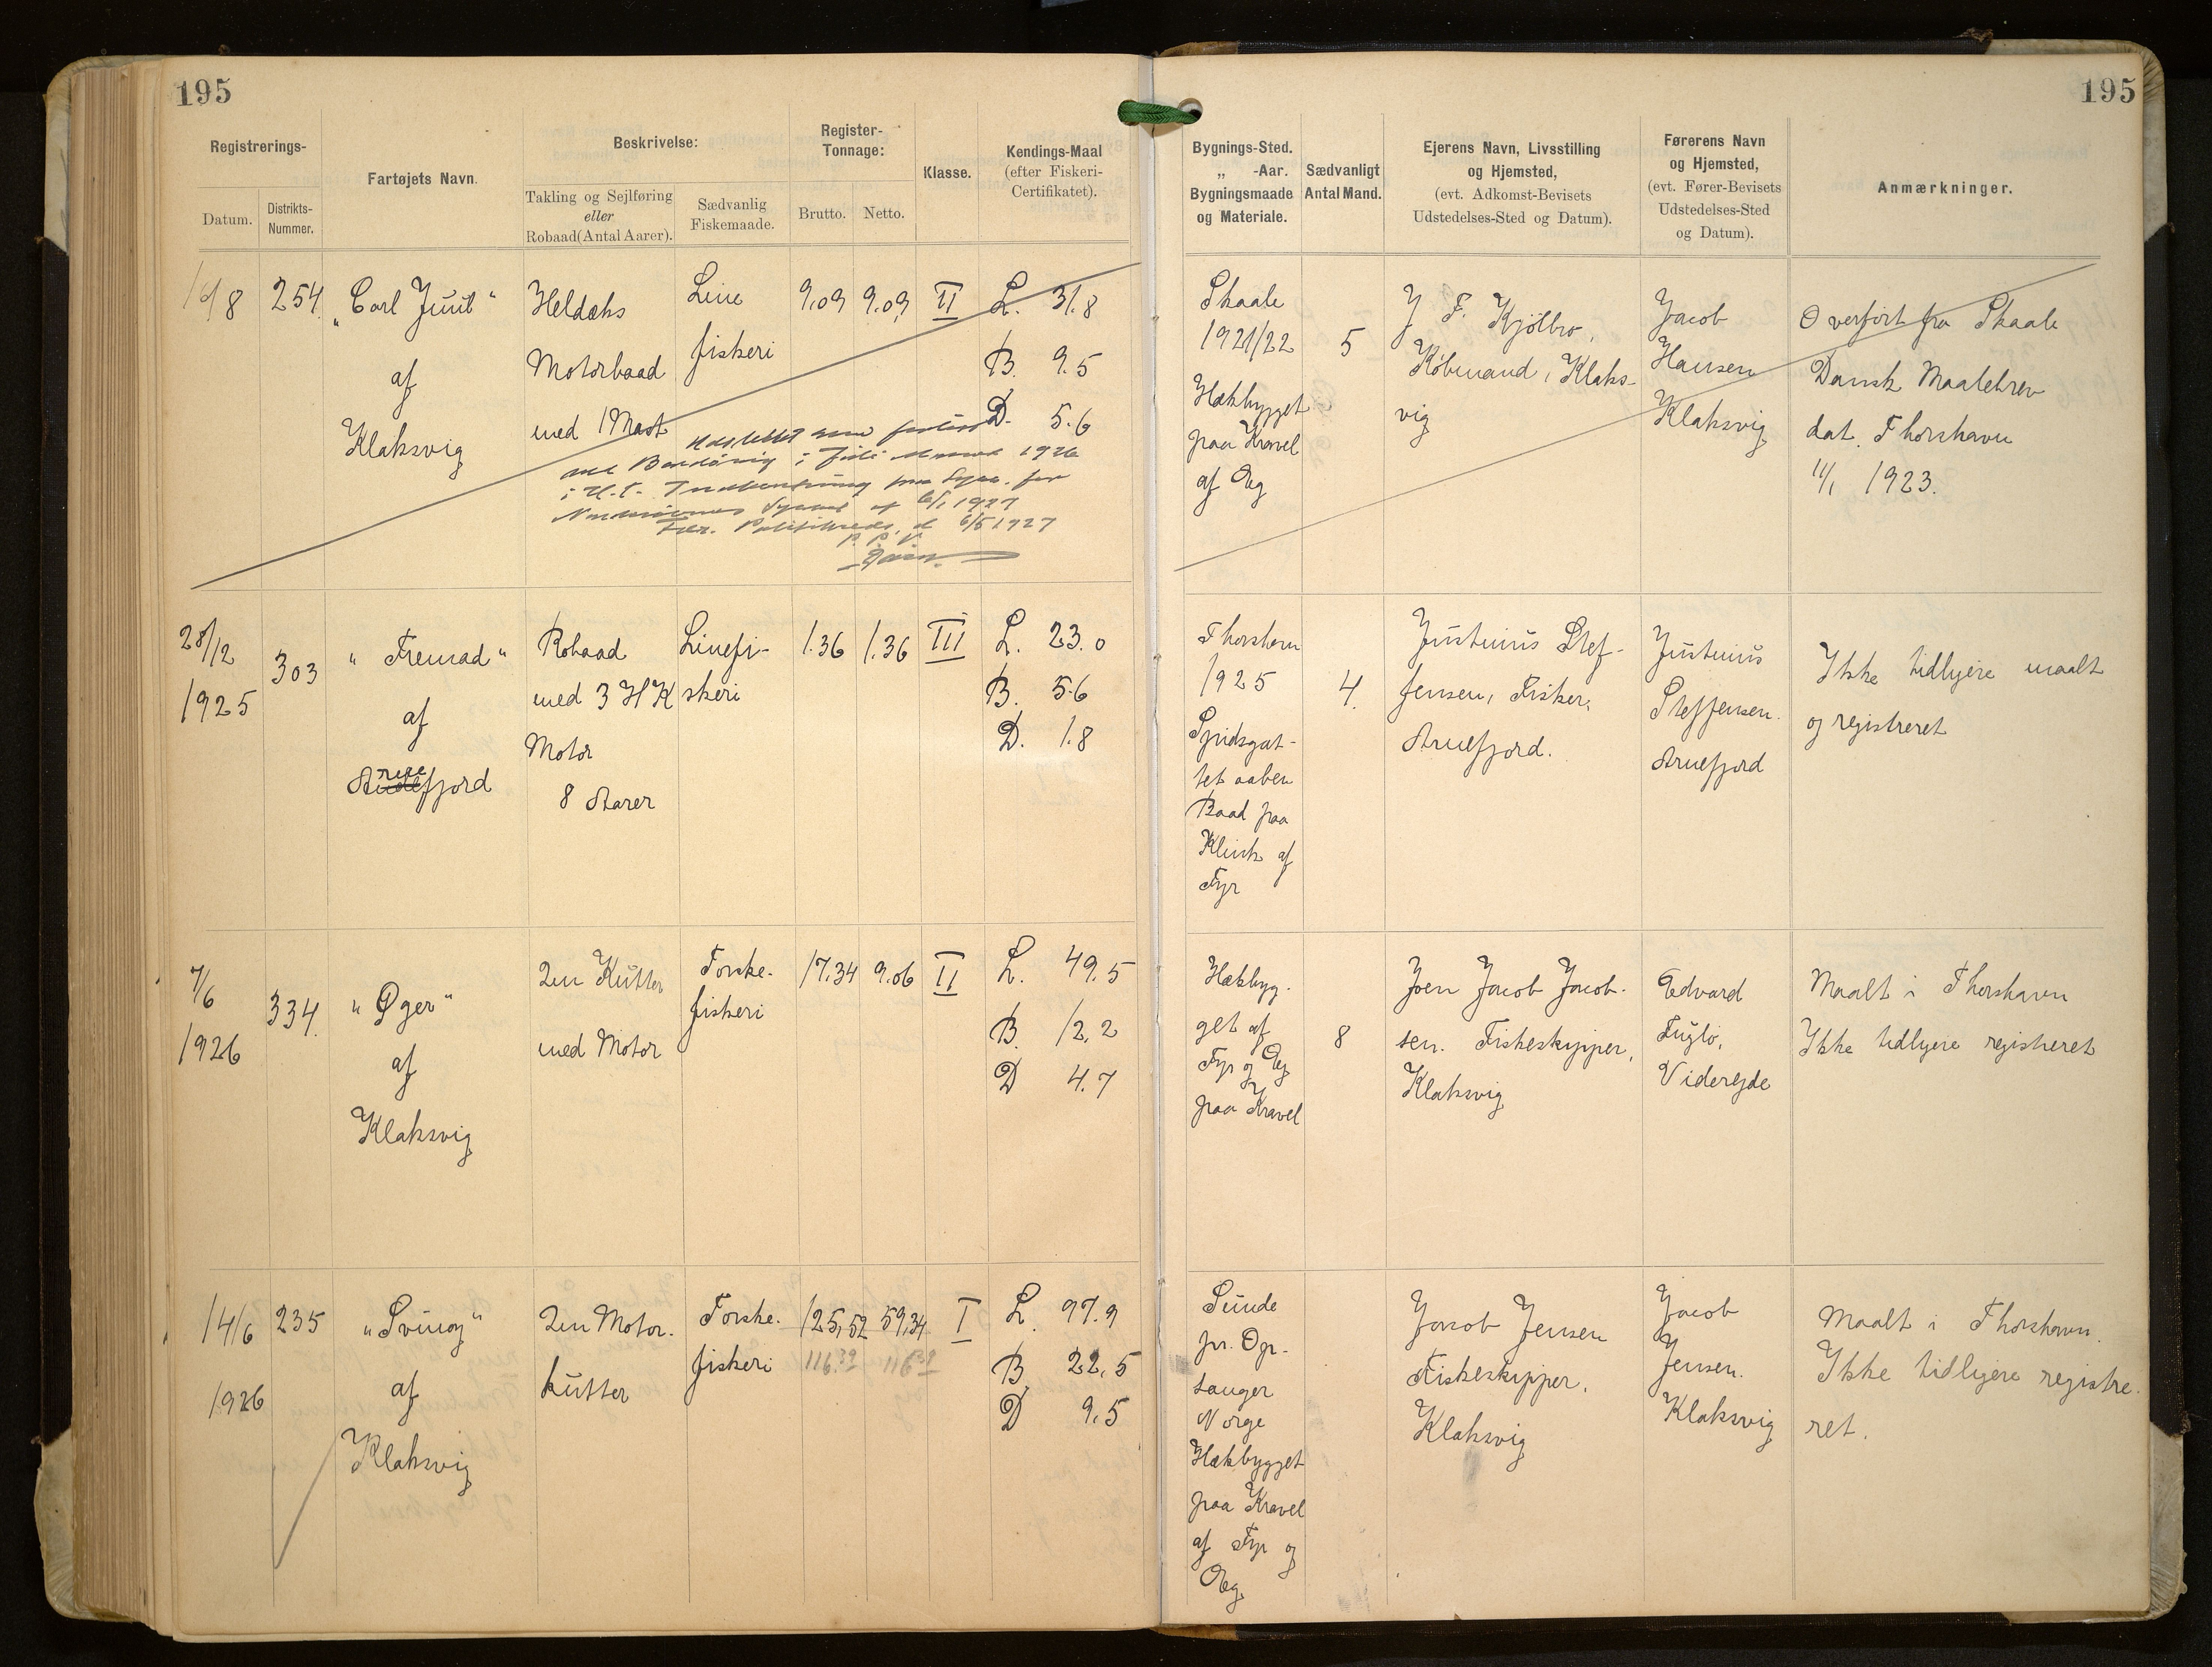 195
195
Registrerings-
Datum.
Distrikts-
Nummer.
Fartøjets Navn.
Beskrivelse:
Takling og Sejlføring
eller
Robaad (Antal Aarer).
Sædvanlig
Fiskemaade.
Register-
Tonnage:
Brutto.
Netto.
Klasse.
Kendings-Maal
(efter Fiskeri-
Certifikatet).
Bygnings-Sted.
„ -Aar.
Bygningsmaade
og Materiale.
Sædvanligt
Antal Mand.
Ejerens Navn, Livsstilling
og Hjemsted,
(evt. Adkomst-Bevisets
Udstedelses-Sted og Datum).
Førerens Navn
og Hjemsted,
(evt. Fører-Bevisets
Udstedelses-Sted
og Datum).
Anmærkninger.
254
„Carl Juul“
af
Klaksvig
Heldæks
Motorbaad
med 1 Mast
Line
fiskeri
9,09
9,09
II
L. 31.8
B. 9.5
D. 5.6
Udslettet som forlist
ved Bordövig i Juli Maaned 1926
i H.t. Indberetning fra Syss. for
Norderöernes Syssel af 6/1 1927
Fær. Politikreds, d 6/5 1927
P. P. V.
Skaale
1921/22
Hækbygget
paa Kravel
af Eg
5
J F. Kjölbro,
Købmand, Klaks-
vig
Jacob
Hansen
Klaksvig
Overført fra Skaale
Dansk Maalebrev
dat. Thorshavn
11/1 1923.
28/12
1925
303
„Fremad“
af
Arnefjord
Robaad
med 3 HK
Motor
8 Aarer
Linefi-
skeri
1.36
1.36
III
L. 23.0
B. 5.6
D. 1.8
Thorshavn
1925
Spidsgat-
tet aaben
Baad paa
Klink af
Fyr
4.
Justinus Stef-
fensen, Fisker,
Arnefjord.
Justinus
Steffensen.
Arnefjord
Ikke tidligere maalt
og registreret
7/6
1926
334.
„Øger“
af
Klaksvig
2m Kutter
med Motor
Torske-
fiskeri
17.34
9.06
II
L. 49.5
B. 12,2
D 4.7
Hækbyg-
get af
Fyr og Eg
paa Kravel
8
Joen Jacob Jacob-
sen. Fiskeskipper,
Klaksvig
Edvard
Fuglø,
Viderejde
Maalt i Thorshavn
Ikke tidligere registreret
14/6
1926
235
„Svinoy“
af
Klaksvig
2m Motor-
kutter
Torske-
fiskeri
125,52
59,34
116.39
116.39
I
L. 97.9
B 22,5
D 9,5
Sunde
pr. Op-
sanger
Norge
Hækbygget
paa Kravel
af Fyr og
Eg
Jacob Jensen
Fiskeskipper,
Klaksvig
Jacob
Jensen.
Klaksvig
Maalt i Thorshavn.
Ikke tidligere registre-
ret.